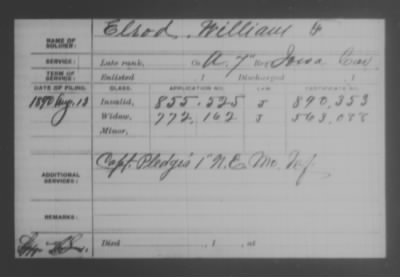 NAME OF SOLDIER: Elrod, William
SERVICE: Late rank, Co A, 7" Reg Iowa Cav
TERM OF SERVICE: Enlisted , 1 Discharged , 1
DATE OF FILING. CLASS. APPLICATION NO. LAW CERTIFICATE NO.
1890 Aug. 13 Invalid, 855.525 J 890,353
Widow, 772,162 J 563,088
Minor,
ADDITIONAL SERVICES: Capt. Pledge's 1" N.E. Mo. Inf
REMARKS:
Died , 1 , at